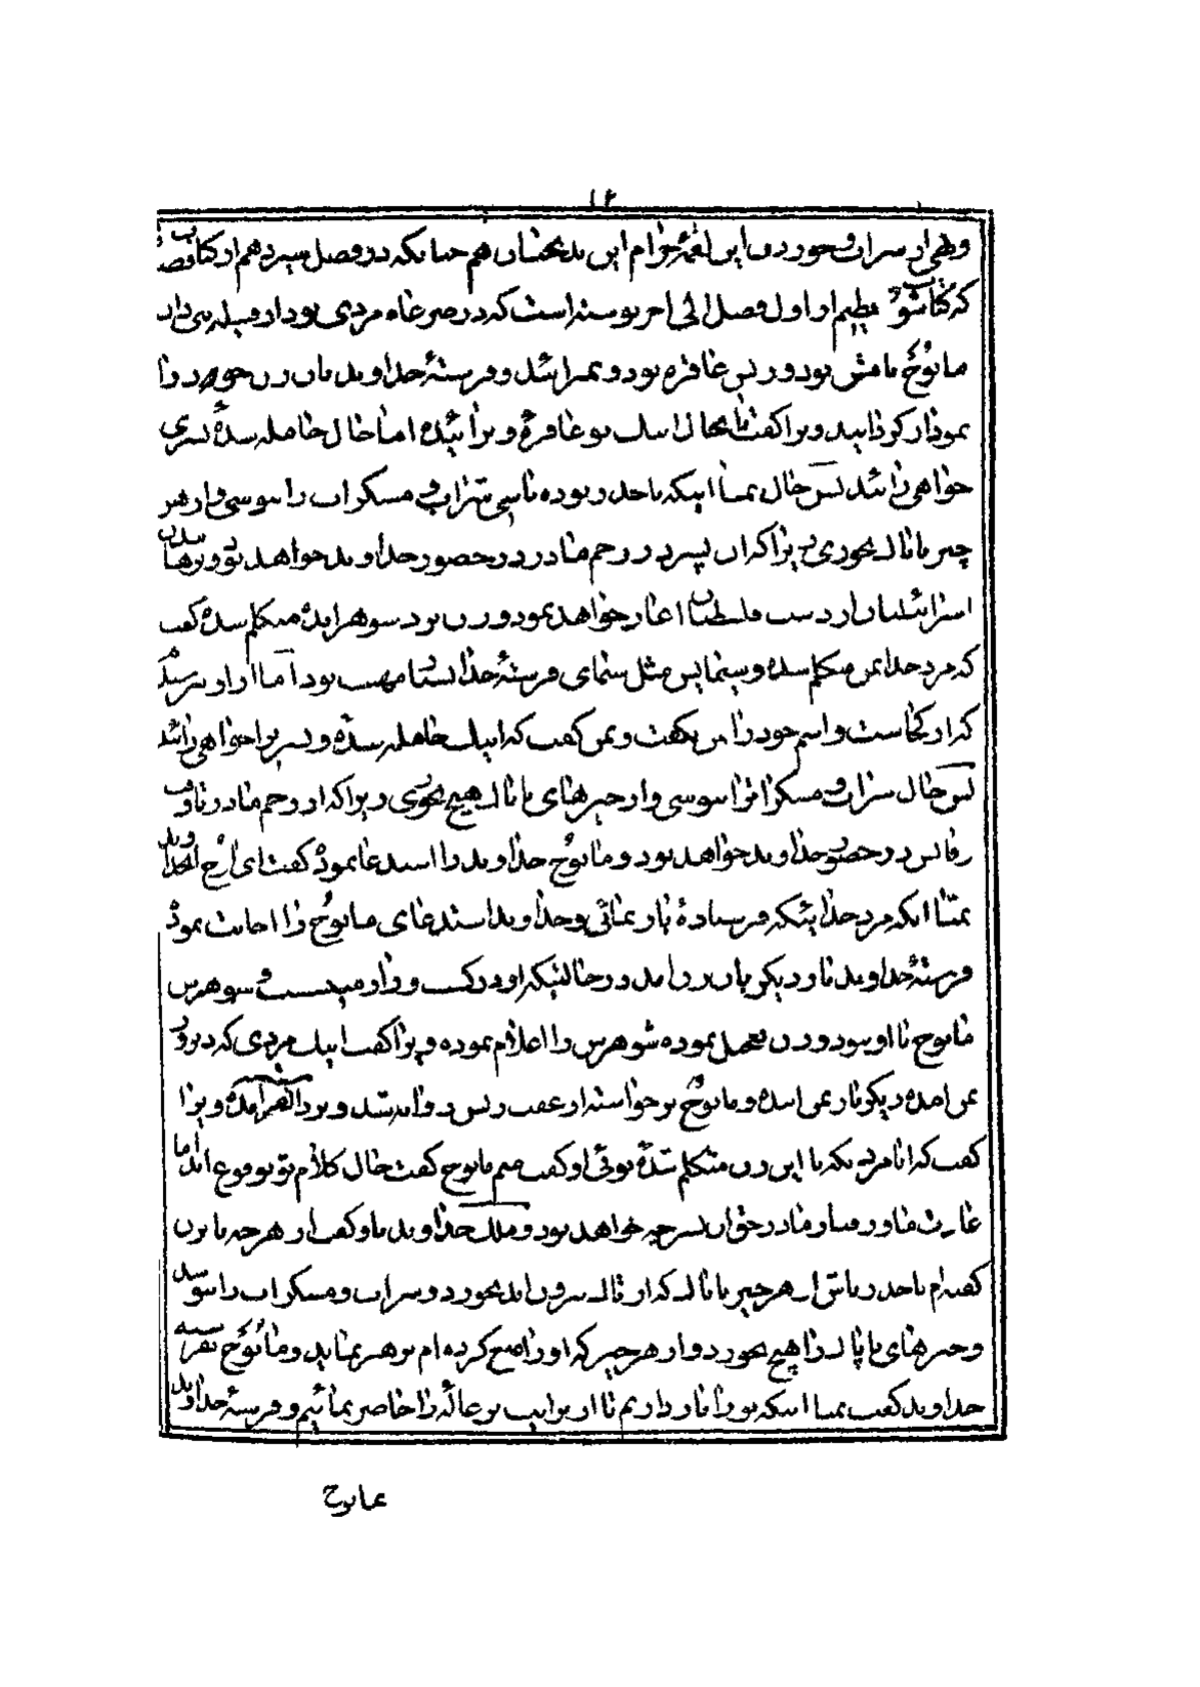 ۱۴
ونهی از شراب و خوردن این لقمهٔ حرام این بدبختان هم چنانکه در فصل سیزدهم از کتاب قضـ
که کتاب شوفطیم از اول فصل الی آخر نوشته است که در صرعاه مردی بود از قبیله بنی دان
مانوح نامش بود و زنش عاقره بود و نمیزائید و فرشتهٔ خداوند بآن زن خود را
نمودار گردانید و ویرا گفت تا بحال اینک تو عاقرهٔ و نزائیدهٔ اما حال حامله شدهٔ پسری
خواهی زائید پس حال تمنا اینکه باحذر بوده تا بی شراب و مسکرات را ننوشی و از هر
چیز ناپاک نخوری زیرا که آن پسر در رحم مادر در حضور خداوند خواهد بود و رها شدن
اسرائیلیان از دست فلسطیان آغاز خواهد نمود و زن نزد شوهر آمده متکلم شده گفت
که مرد خدا بمن متکلم شده و سیمایش مثل سیمای فرشتهٔ خدا بسیار مهیب بود اما از او نپرسیدم
که از کجاست و اسم خود را بمن نگفت و بمن گفت که اینک حامله شدهٔ و پسری را خواهی زائید
پس حال شراب و مسکرات را ننوشی و از چیزهای ناپاک هیچ نخوری زیرا که از رحم مادر تا وقت
وفاتش در حضور خداوند خواهد بود و مانوح خداوند را استدعا نمود گفت ای آه خداوند
تمنا اینکه مرد خدائیکه فرستادهٔ باز نمائی و خداوند استدعای مانوح را اجابت نمود
فرشتهٔ خداوند بار دیگر بآن زن آمد در حالتیکه او در کشت وزار مینشست و شوهرش
مانوح با او نبود و زن تعجیل نموده شوهرش را اعلام نموده ویرا گفت اینک مردی که دیروز
بمن آمده دیگر بار بمن آمده و مانوح برخاسته از عقب زنش روانه شد و نزد آنمرد آمده ویرا
گفت که آیا مردیکه با این زن متکلم شدهٔ توئی او گفت منم مانوح گفت حال کلام تو بوقوع آید اما
عادت ما و رفتار ما در حق آن پسر چه خواهد بود و ملک خداوند باو گفت از هر چه بآن زن
گفته‌ام باحذر باش از هر چیز ناپاک که از تاک بیرون آید نخورد و شراب و مسکرات را ننوشد
و چیزهای ناپاک را هیچ نخورد و از هر چیز که او را نصح کرده‌ام پرهیز نماید و مانوح بفرشته
خداوند گفت تمنا اینکه تو را باز داریم تا از برایت بزغاله را حاضر نمائیم و فرشتهٔ خداوند
بمانوح